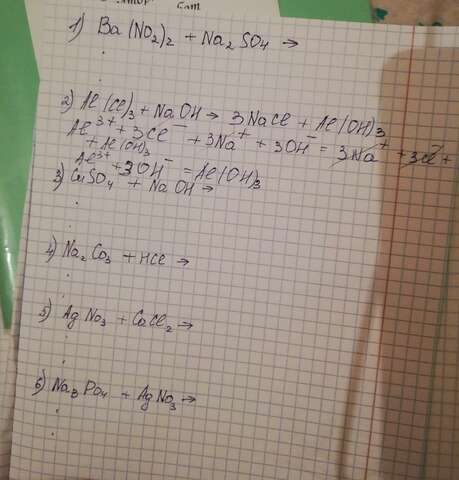 Cam
1) Ba(NO2)2 + Na2SO4 →
2) Al(Cl)3 + NaOH → 3NaCl + Al(OH)3
Al3+ + 3Cl− + 3Na+ + 3OH− = 3Na+ + 3Cl− +
+ Al(OH)3
Al3+ + 3OH− = Al(OH)3
3) CuSO4 + NaOH →
4) Na2Co3 + HCl →
5) AgNo3 + CaCl2 →
6) Na3Po4 + AgNo3 →